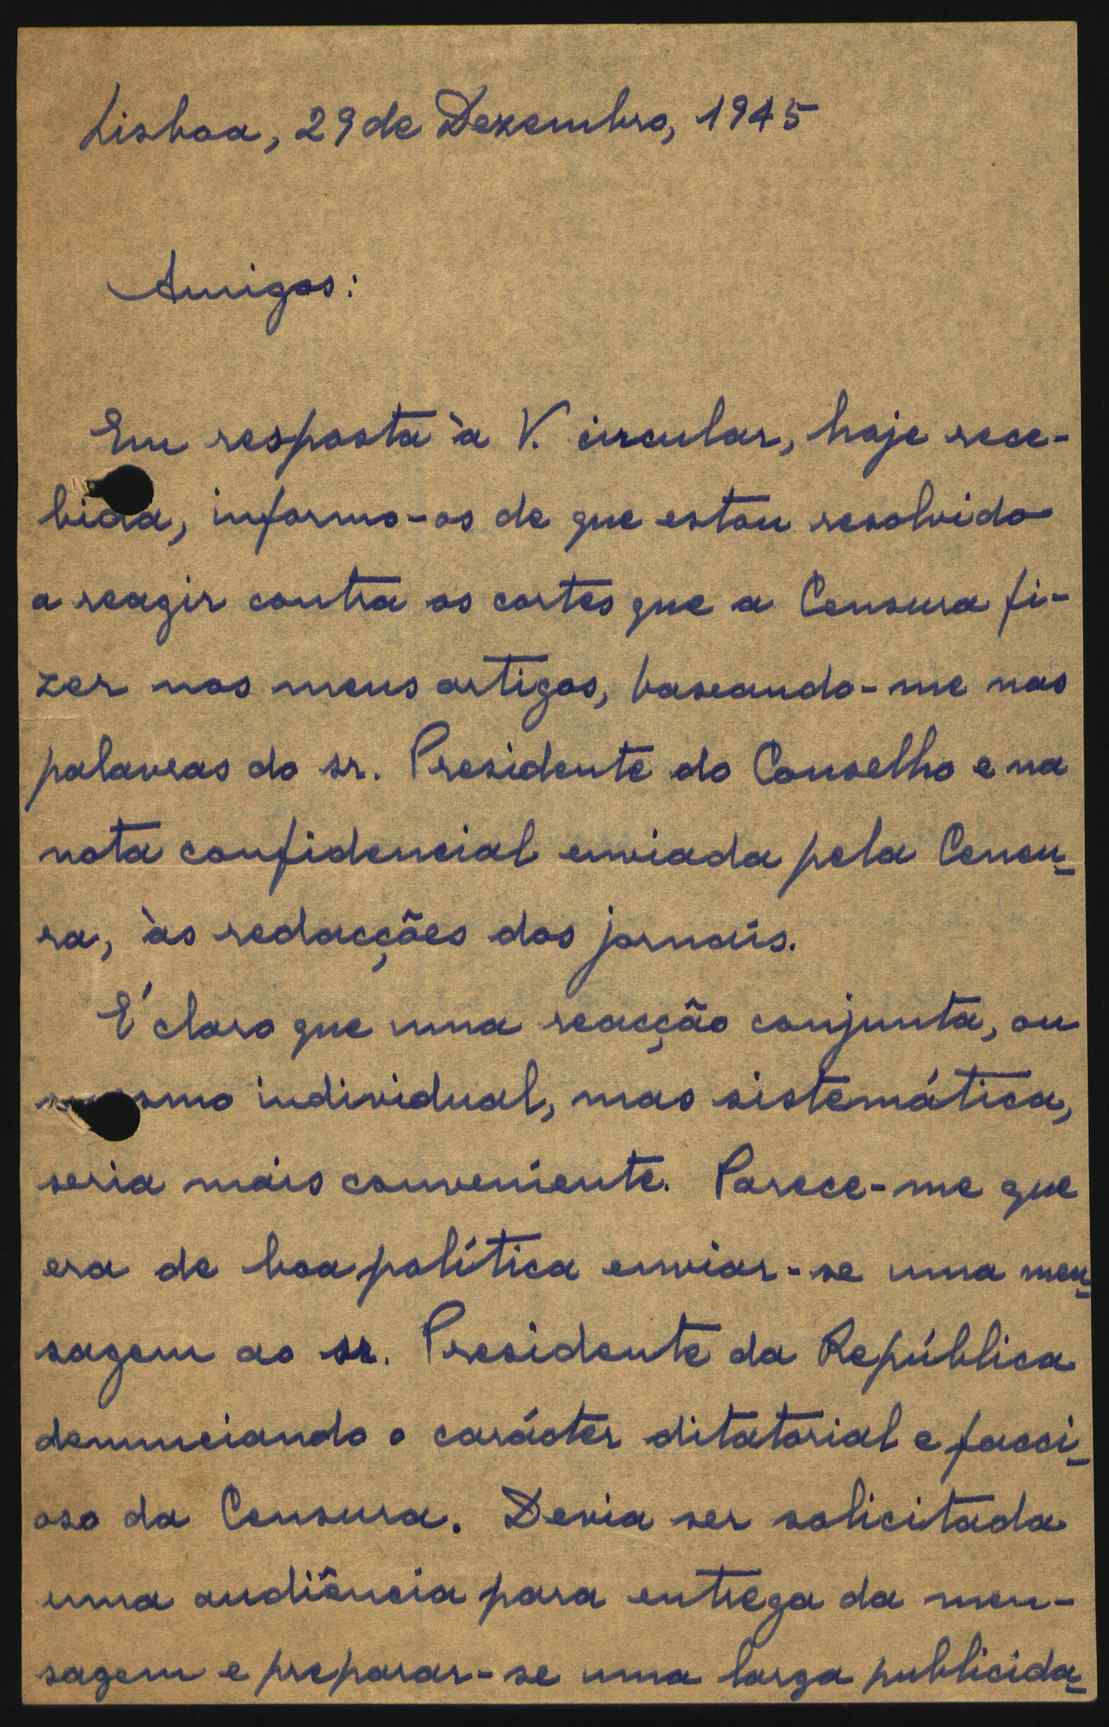 Lisboa, 29 de Dezembro, 1945
Amigos:
Em resposta à V. circular, hoje rece-
bida, informo-os de que estou resolvido
a reagir contra os cortes que a Censura fi-
zer nos meus artigos, baseando-me nas
palavras do sr. Presidente do Conselho e na
nota confidencial enviada pela Censu-
ra, às redacções dos jornais.
É claro que uma reacção conjunta, ou
mesmo individual, mas sistemática,
seria mais conveniente. Parece-me que
era de boa política enviar-se uma men-
sagem ao sr. Presidente da República
denunciando o carácter ditatorial e facci-
oso da Censura. Devia ser solicitada
uma audiência para entrega da men-
sagem e preparar-se uma larga publicida-